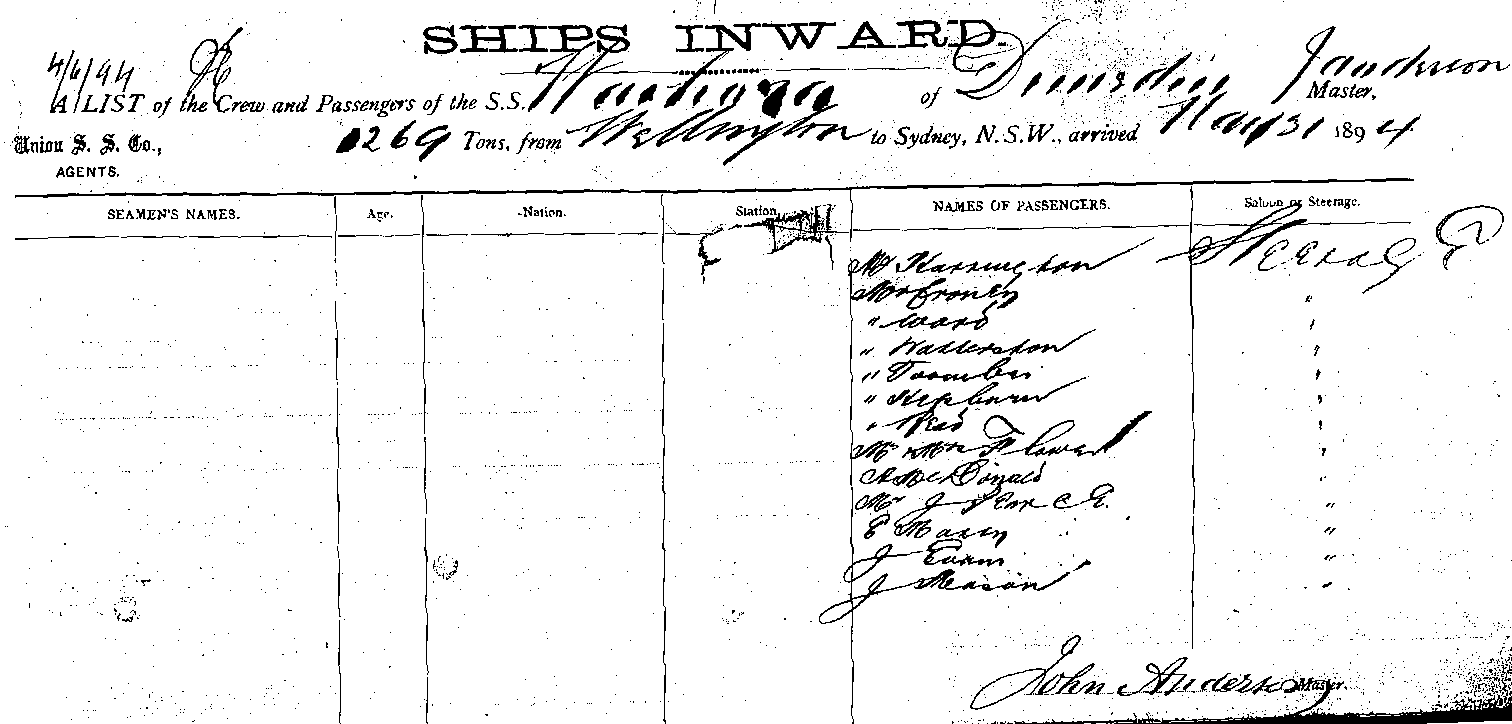 SHIPS INWARD.
4/6/94
A LIST of the Crew and Passengers of the S.S. Waihora of Dunedin J Anderson Master,
Union S. S. Co., AGENTS. 1269 Tons, from Wellington to Sydney, N.S.W., arrived May 31 1894
SEAMEN'S NAMES. Age. Nation. Station NAMES OF PASSENGERS. Saloon or Steerage.
Mr Harrington Steerage
Mr Croney "
" Ward "
" Watterston "
" Toombs "
" Hepburn "
" Read "
Mr & Mrs Flower "
A McDonald "
Mr J Pearce "
E Maxey "
J Evans "
J Meason "
John Anderson Master.